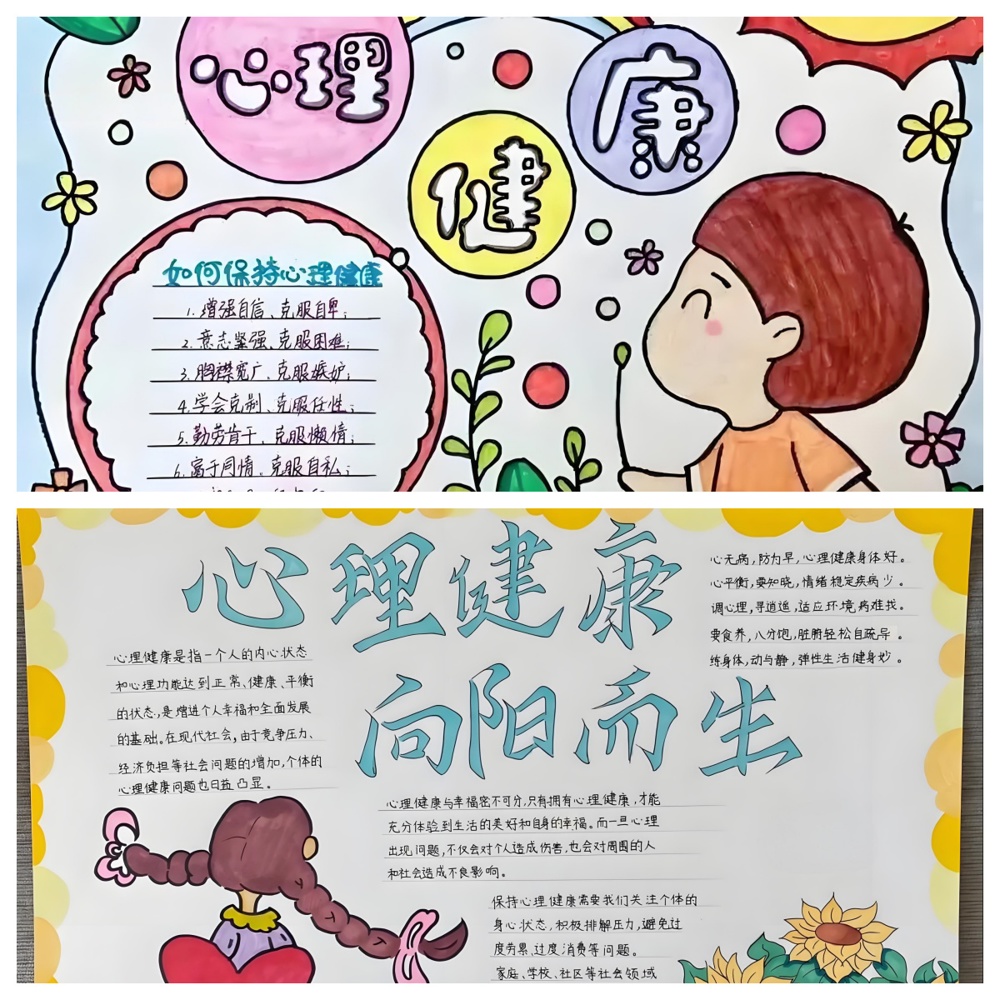 心理
健
康
如何保持心理健康
1.增强自信、克服自卑；
2.意志坚强、克服困难；
3.胸襟宽广、克服嫉妒；
4.学会克制、克服任性；
5.勤劳肯干、克服懒惰；
6.富于同情、克服自私；
心理健康
向阳而生
心无病，防为早，心理健康身体好。
心平衡，要知晓，情绪稳定疾病少。
调心理，寻逍遥，适应环境病难找。
要食养，八分饱，脏腑轻松自疏导。
练身体，动与静，弹性生活健身妙。
心理健康是指一个人的内心状态
和心理功能达到正常、健康、平衡
的状态，是增进个人幸福和全面发展
的基础。在现代社会，由于竞争压力、
经济负担等社会问题的增加，个体的
心理健康问题也日益凸显。
心理健康与幸福密不可分，只有拥有心理健康，才能
充分体验到生活的美好和自身的幸福。而一旦心理
出现问题，不仅会对个人造成伤害，也会对周围的人
和社会造成不良影响。
保持心理健康需要我们关注个体的
身心状态，积极排解压力，避免过
度劳累、过度消费等问题。
家庭、学校、社区等社会领域